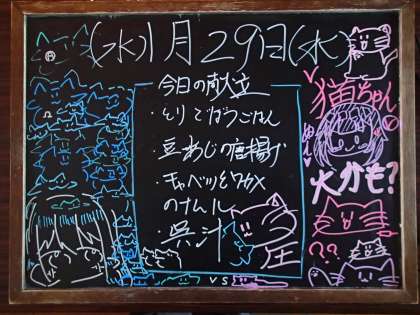 (水)1月29日(水)
今日の献立
・とりごぼうごはん
・豆あじの唐揚げ
・キャベツとワカメ
のナムル
・呉汁
圧
猫ちゃん
かも?
??
VS